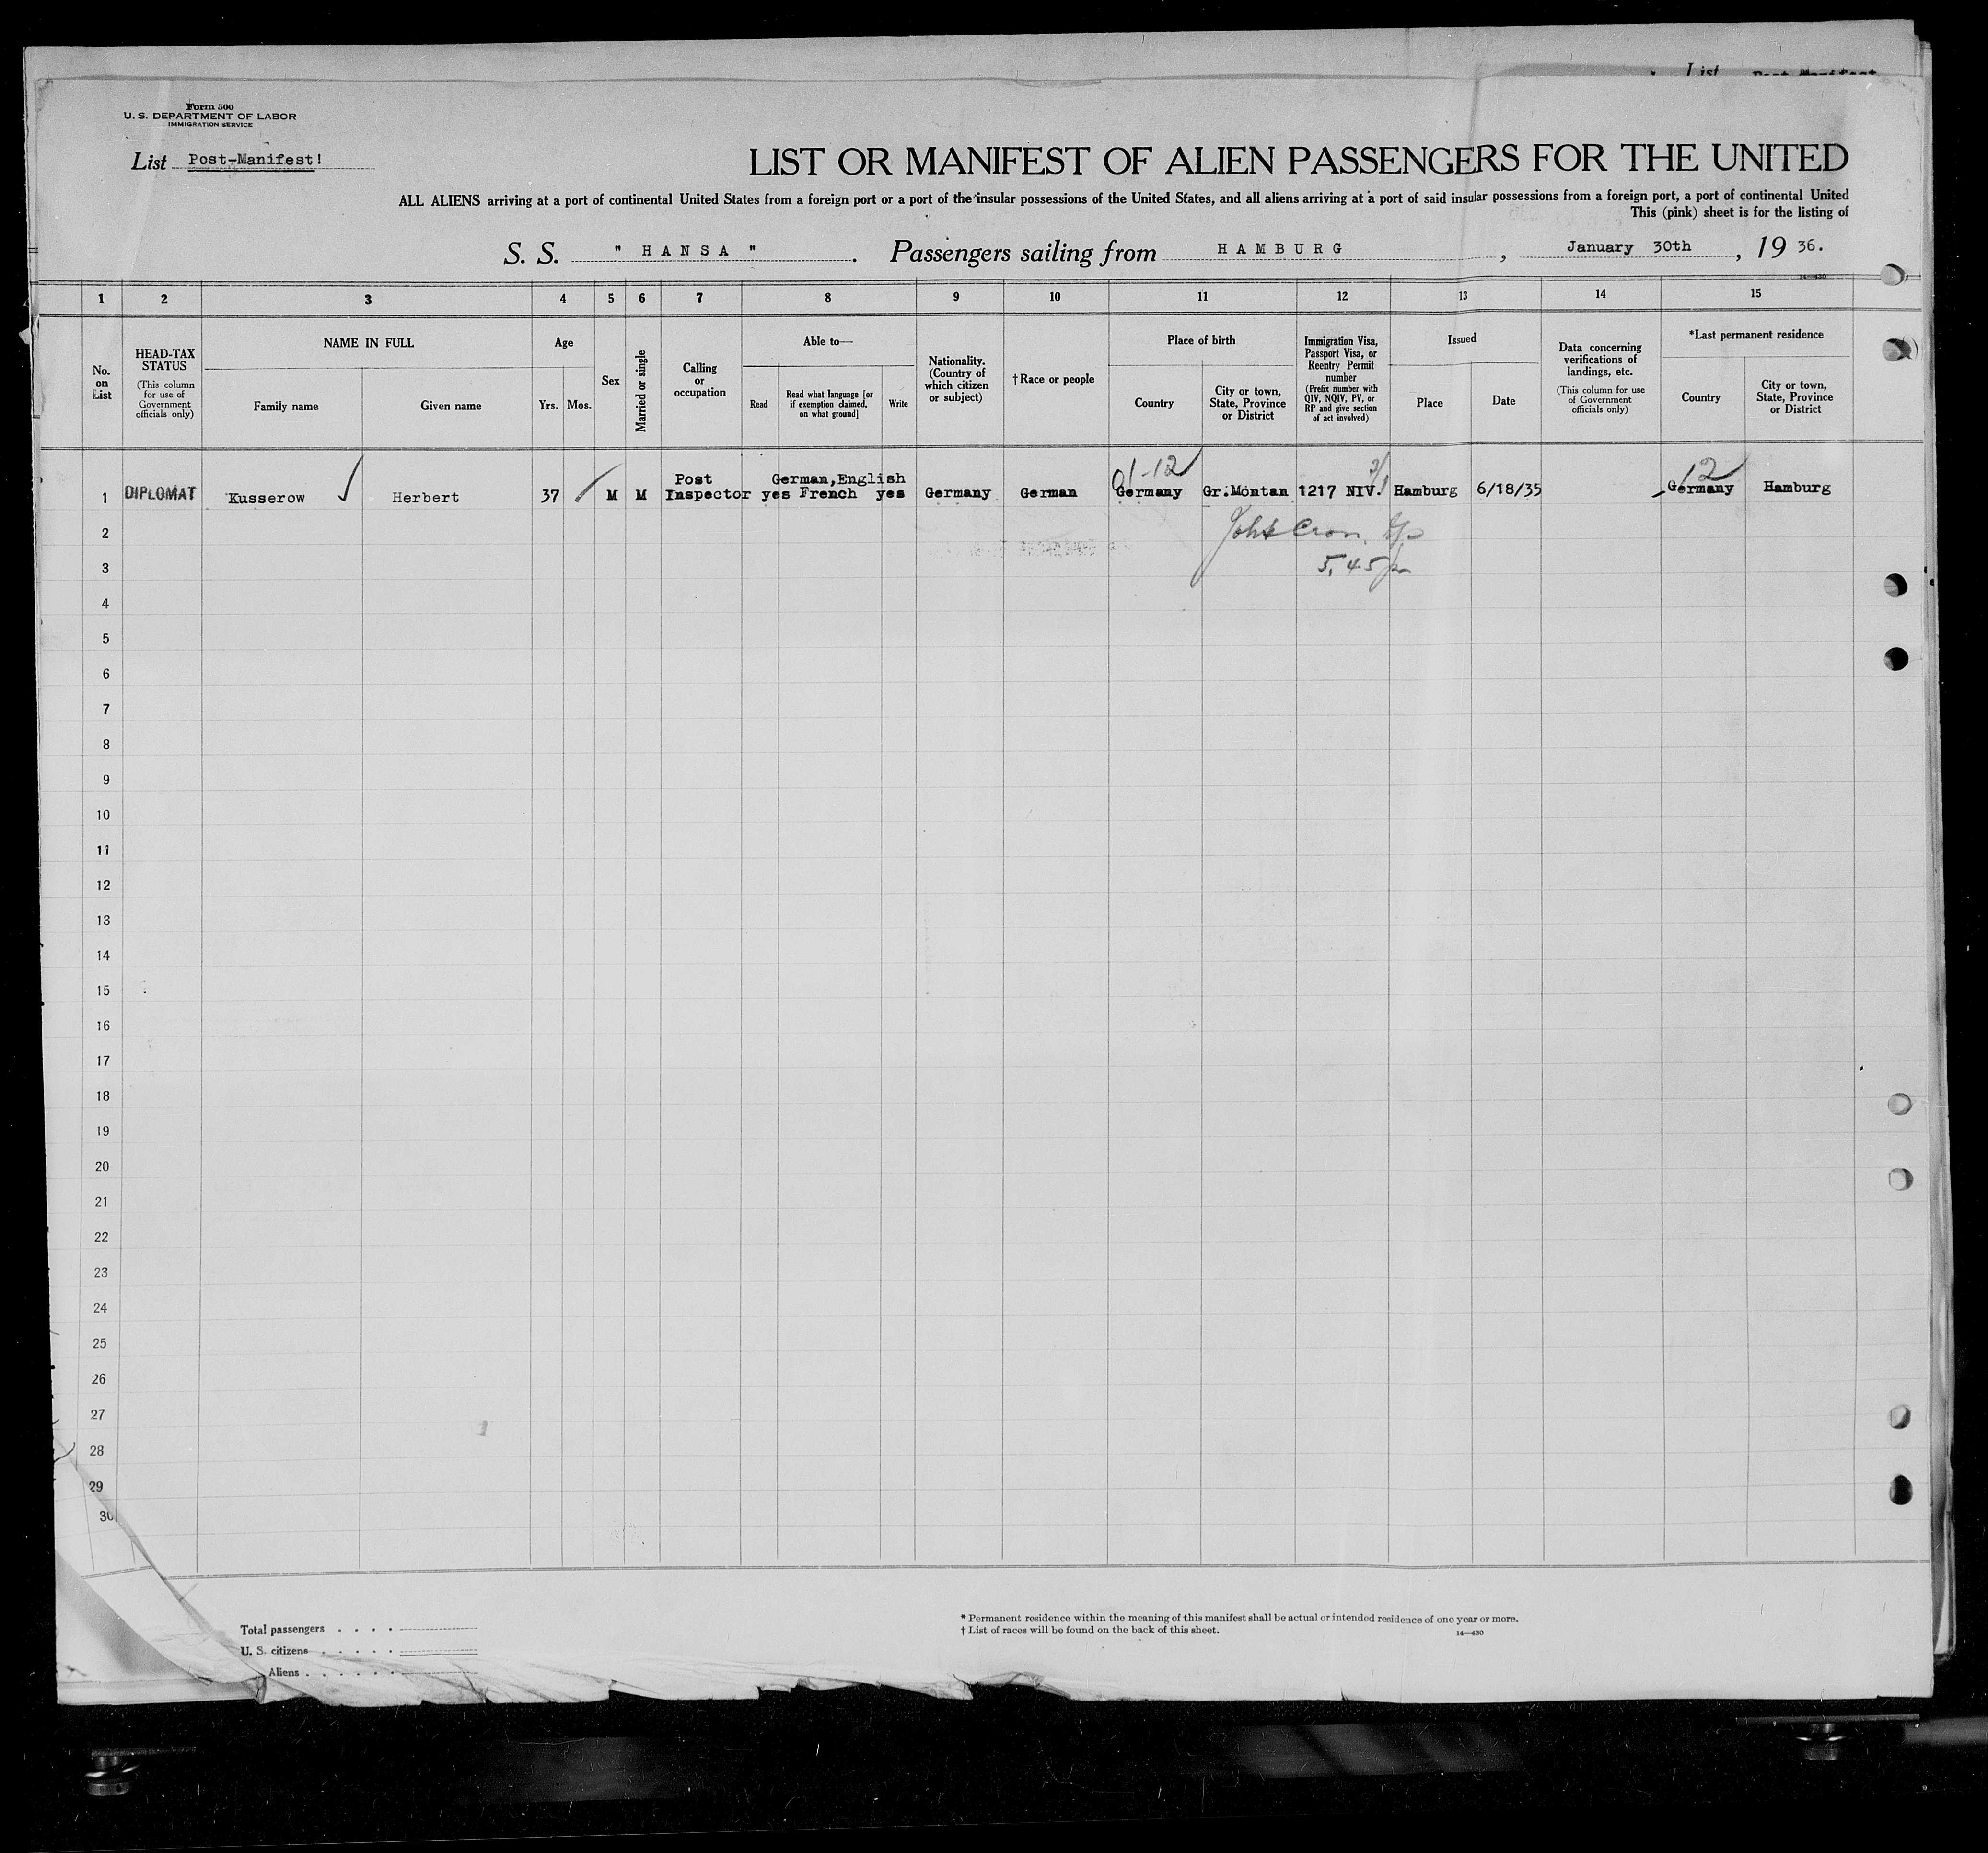 Form 500
U. S. DEPARTMENT OF LABOR
IMMIGRATION SERVICE
List
List Post-Manifest!
LIST OR MANIFEST OF ALIEN PASSENGERS FOR THE UNITED
ALL ALIENS arriving at a port of continental United States from a foreign port or a port of the insular possessions of the United States, and all aliens arriving at a port of said insular possessions from a foreign port, a port of continental United
This (pink) sheet is for the listing of
S. S. " HANSA " . Passengers sailing from HAMBURG , January 30th , 19 36.
14—430
1 2 3 4 5 6 7 8 9 10 11 12 13 14 15
No. on List
HEAD-TAX STATUS
(This column for use of Government officials only)
NAME IN FULL
Family name
Given name
Age
Yrs.
Mos.
Sex
Married or single
Calling or occupation
Able to—
Read
Read what language [or if exemption claimed, on what ground]
Write
Nationality. (Country of which citizen or subject)
†Race or people
Place of birth
Country
City or town, State, Province or District
Immigration Visa, Passport Visa, or Reentry Permit number
(Prefix number with QIV, NQIV, PV, or RP and give section of act involved)
Issued
Place
Date
Data concerning verifications of landings, etc.
(This column for use of Government officials only)
*Last permanent residence
Country
City or town, State, Province or District
1 DIPLOMAT Kusserow Herbert 37 M M Post Inspector yes German,English French yes Germany German Germany Gr.Montan 1217 NIV. Hamburg 6/18/35 Germany Hamburg
12
2
3
5.45
4
5
6
7
8
9
10
11
12
13
14
15
16
17
18
19
20
21
22
23
24
25
26
27
28
29
30
Total passengers
U. S. citizens
Aliens
* Permanent residence within the meaning of this manifest shall be actual or intended residence of one year or more.
† List of races will be found on the back of this sheet.
14—430